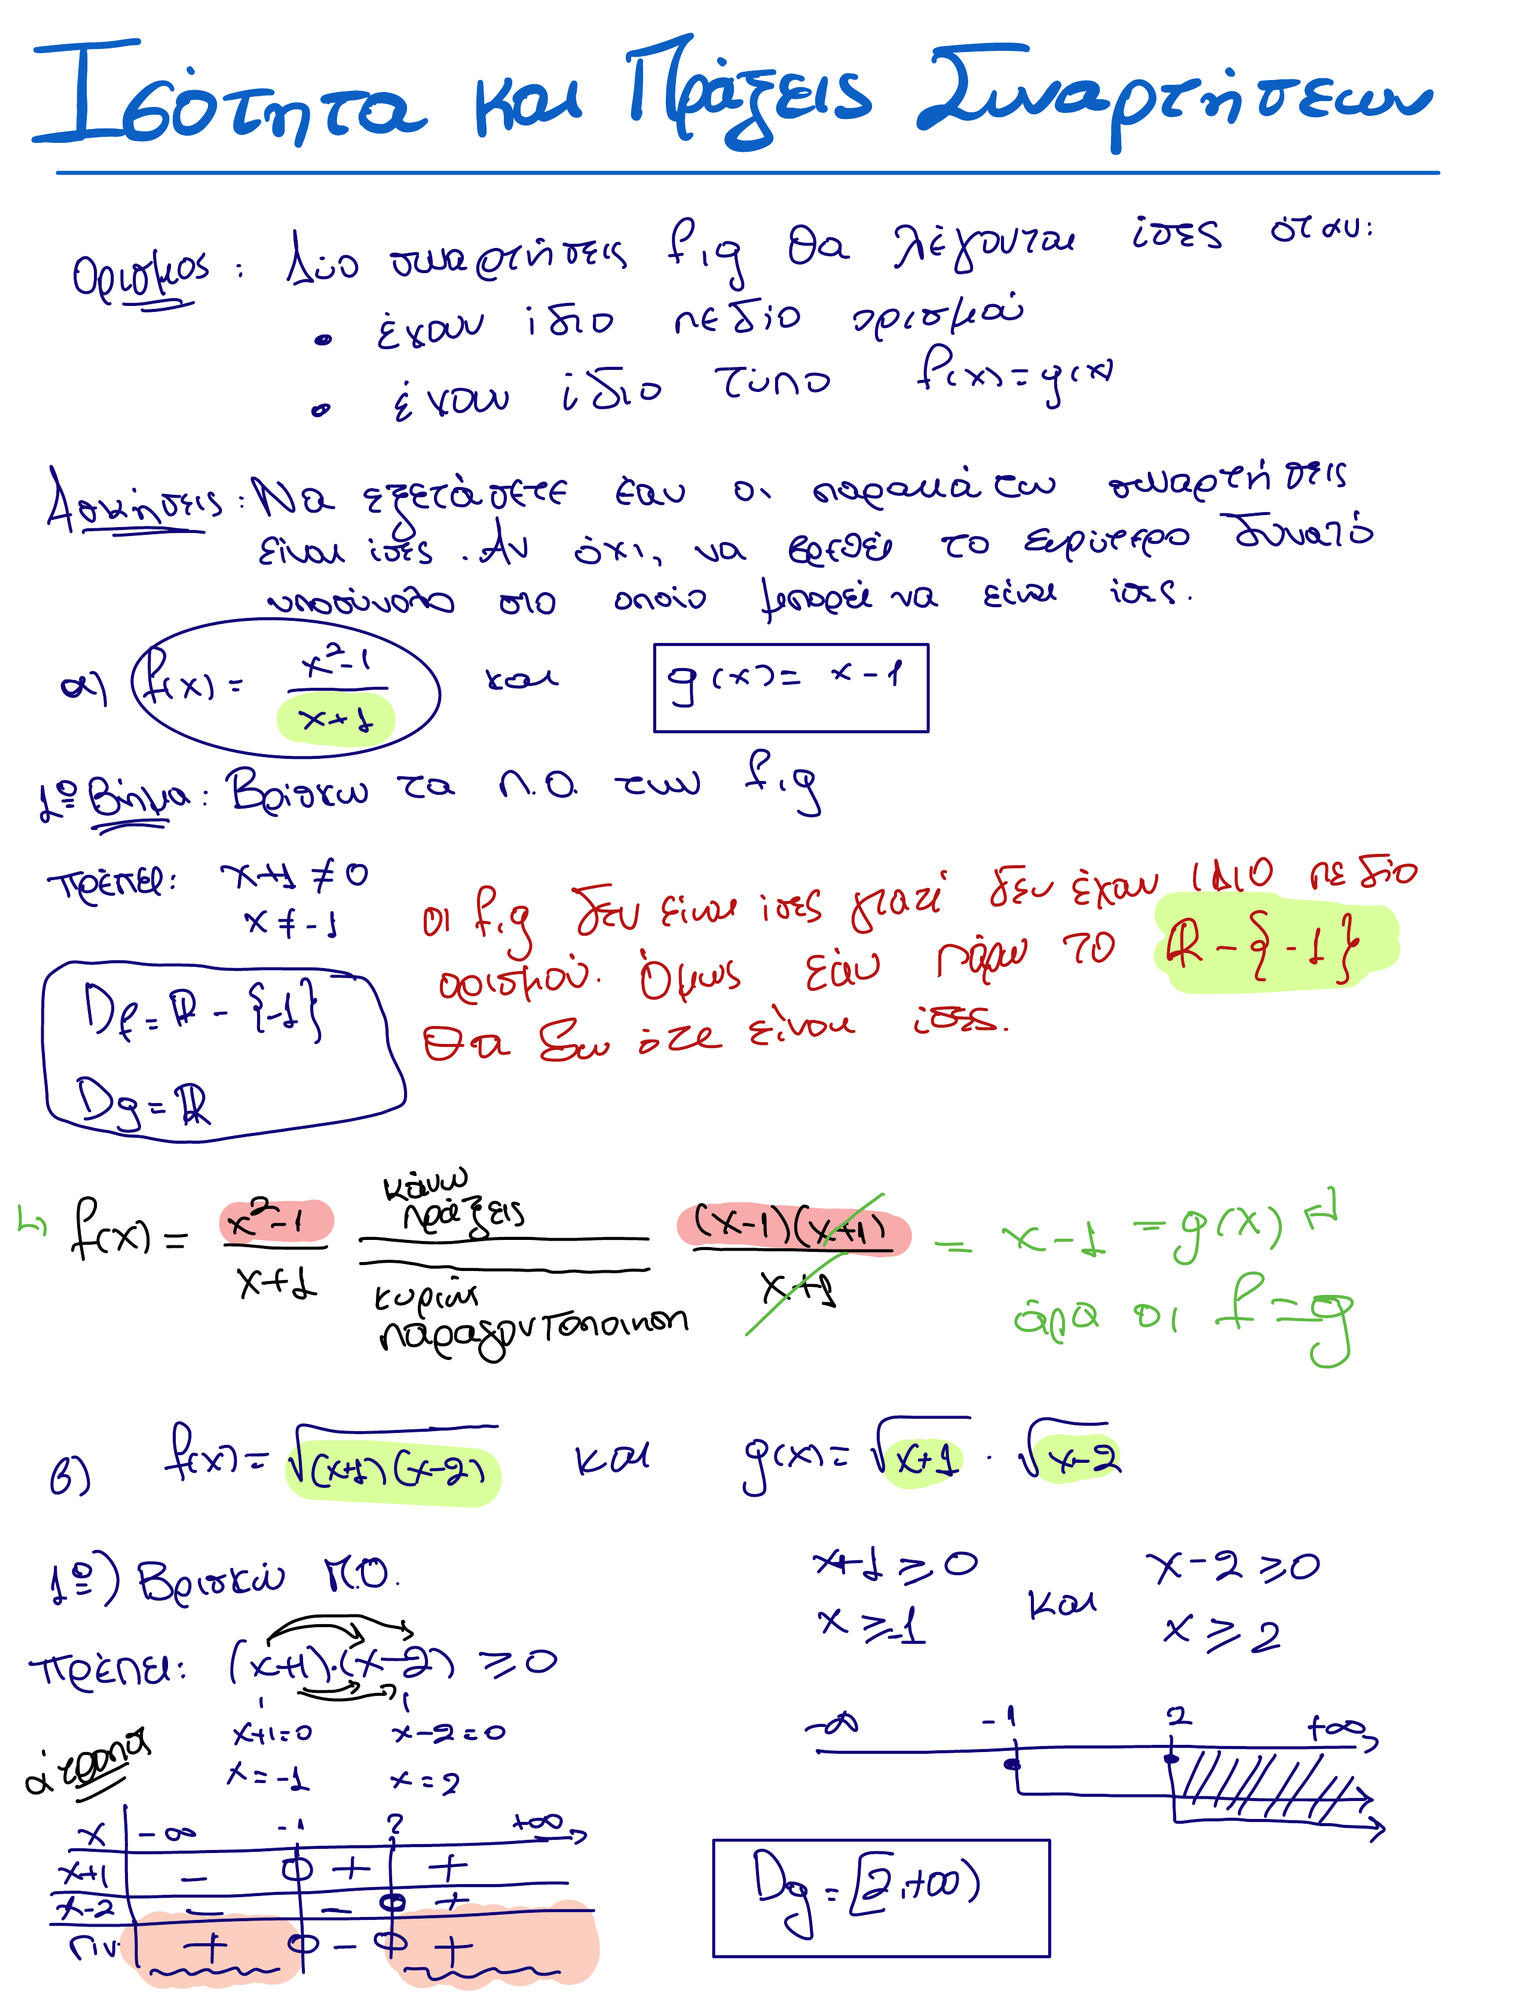 Ισότητα και Πράξεις Συναρτήσεων
Ορισμος: Δύο συναρτήσεις f,g θα λέγονται ίσες όταν:
• έχουν ίδιο πεδίο ορισμού
• έχουν ίδιο τύπο f(x)=g(x)
Ασκήσεις: Να εξετάσετε εάν οι παρακάτω συναρτήσεις
είναι ίσες. Αν όχι, να βρεθεί το ευρύτερο δυνατό
υποσύνολο στο οποίο μπορεί να είναι ίσες.
α) f(x) = \frac{x²-1}{x+1} και g(x) = x-1
1º Βήμα: Βρίσκω τα Π.Ο. των f,g
πρέπει: x+1 ≠ 0
x ≠ -1
οι f,g δεν είναι ίσες γιατί δεν έχουν ΙΔΙΟ πεδίο
ορισμού. Όμως εάν πάρω το ℝ - {-1}
θα δω ότι είναι ίσες.
D_f = ℝ - {-1}
D_g = ℝ
↳ f(x) = \frac{x²-1}{x+1} = \frac{(x-1)(x+1)}{x+1} = x-1 = g(x)
κάνω πράξεις
κυρίως παραγοντοποιηση
άρα οι f=g
β) f(x) = √(x+1)(x-2) και g(x) = √x+1 · √x-2
1º) Βρισκω Π.Ο.
πρέπει: (x+1)·(x-2) ≥ 0
x+1=0 x-2=0
x=-1 x=2
άτοπα
x -∞ -1 2 +∞
x+1 - 0 + +
x-2 - - 0 +
Γιν + 0 - 0 +
x+1 ≥ 0 και x-2 ≥ 0
x ≥ -1 x ≥ 2
-∞ -1 2 +∞
D_g = [2,+∞)